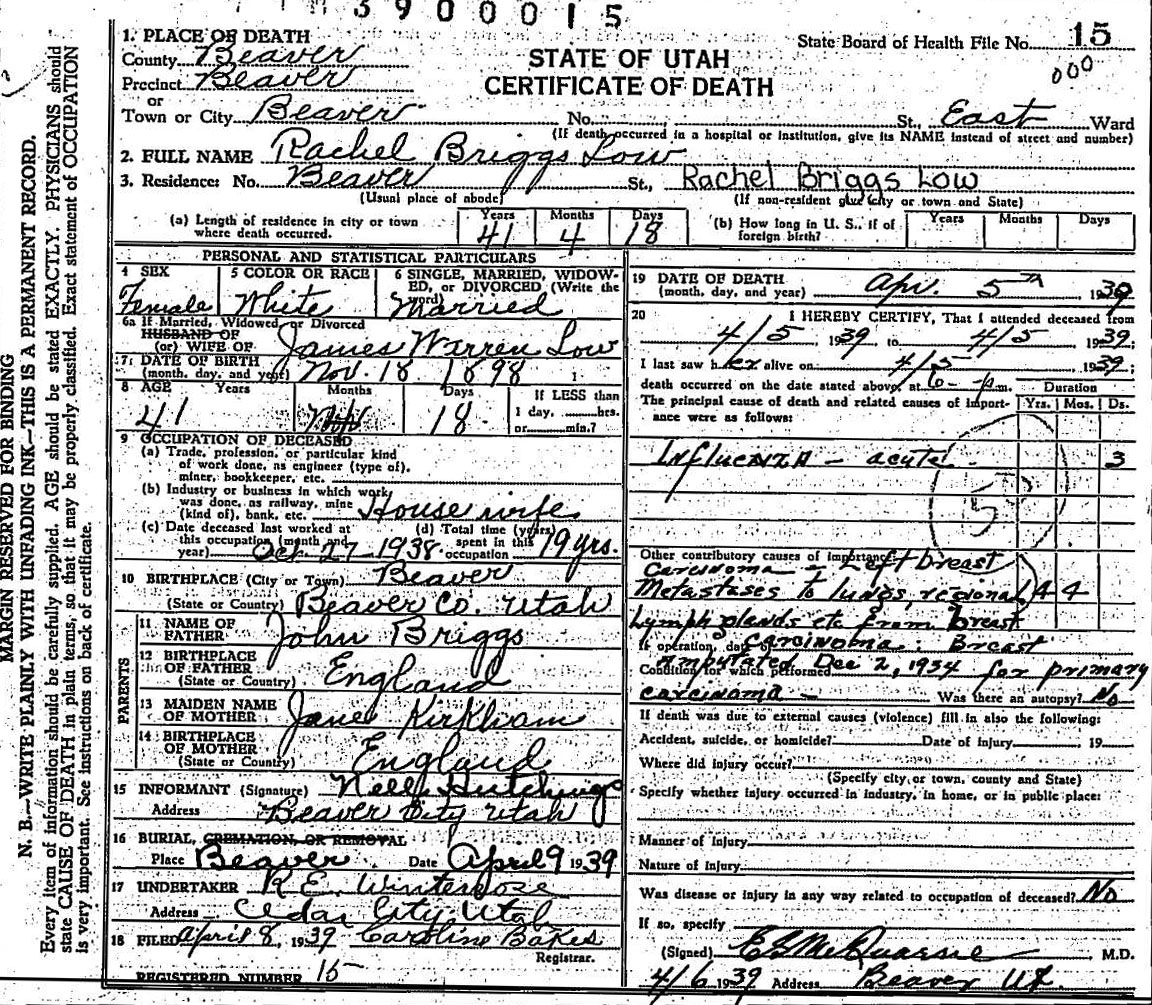 3900015
1. PLACE OF DEATH
County Beaver
Precinct Beaver
or
Town or City Beaver No. St., East Ward
(If death occurred in a hospital or institution, give its NAME instead of street and number)
STATE OF UTAH
CERTIFICATE OF DEATH
State Board of Health File No. 15
000
2. FULL NAME Rachel Briggs Low
3. Residence: No. Beaver St., Rachel Briggs Low
(Usual place of abode) (If non-resident give city or town and State)
(a) Length of residence in city or town where death occurred. Years 41 Months 4 Days 18
(b) How long in U. S., if of foreign birth? Years Months Days
PERSONAL AND STATISTICAL PARTICULARS
4 SEX Female
5 COLOR OR RACE White
6 SINGLE, MARRIED, WIDOW-
ED, or DIVORCED (Write the
word) Married
6a If Married, Widowed or Divorced
HUSBAND OF
(or) WIFE OF James Warren Low
7 DATE OF BIRTH
(month, day, and year) Nov. 18 1898
8 AGE Years Months Days
41 18
If LESS than
1 day, hrs.
or min.?
9 OCCUPATION OF DECEASED
(a) Trade, profession, or particular kind
of work done, as engineer (type of),
miner, bookkeeper, etc.
(b) Industry or business in which work
was done, as railway, mine
(kind of), bank, etc. Housewife
(c) Date deceased last worked at
this occupation (month and
year) Oct. 27 1938
(d) Total time (years)
spent in this
occupation 19 yrs.
10 BIRTHPLACE (City or Town) Beaver
(State or Country) Beaver Co. Utah
PARENTS
11 NAME OF
FATHER John Briggs
12 BIRTHPLACE
OF FATHER
(State or Country) England
13 MAIDEN NAME
OF MOTHER Jane Kirkham
14 BIRTHPLACE
OF MOTHER
(State or Country) England
15 INFORMANT (Signature) Nell Hutchings
Address Beaver City Utah
16 BURIAL, CREMATION, OR REMOVAL
Place Beaver Date April 9 1939
17 UNDERTAKER R.E. Winterrose
Address Cedar City Utah
18 FILED April 8, 1939 Caroline Bakes
Registrar.
REGISTERED NUMBER 15
19 DATE OF DEATH
(month, day, and year) Apr. 5th 1939
20 I HEREBY CERTIFY, That I attended deceased from
4/5, 1939 to 4/5 1939;
I last saw her alive on 4/5, 1939;
death occurred on the date stated above, at 6 - p.m. Duration
The principal cause of death and related causes of import-
ance were as follows: Yrs. Mos. Ds.
Influenza - acute 3
5
Other contributory causes of importance Left breast
carcinoma -
Metastases to lungs, regional 4 4
Lymph glands etc from breast
If operation, date of carcinoma: Breast
Condition for which performed amputated Dec 2, 1934 for primary
carcinoma - Was there an autopsy? No
If death was due to external causes (violence) fill in also the following:
Accident, suicide, or homicide? Date of injury 19
Where did injury occur?
(Specify city, or town, county and State)
Specify whether injury occurred in industry, in home, or in public place:
Manner of Injury
Nature of Injury
Was disease or injury in any way related to occupation of deceased? No
If so, specify
(Signed) M.D.
4/6 1939 Address Beaver Ut.
MARGIN RESERVED FOR BINDING
N. B.—WRITE PLAINLY WITH UNFADING INK—THIS IS A PERMANENT RECORD.
Every item of information should be carefully supplied. AGE should be stated EXACTLY. PHYSICIANS should
state CAUSE OF DEATH in plain terms, so that it may be properly classified. Exact statement of OCCUPATION
is very important. See instructions on back of certificate.